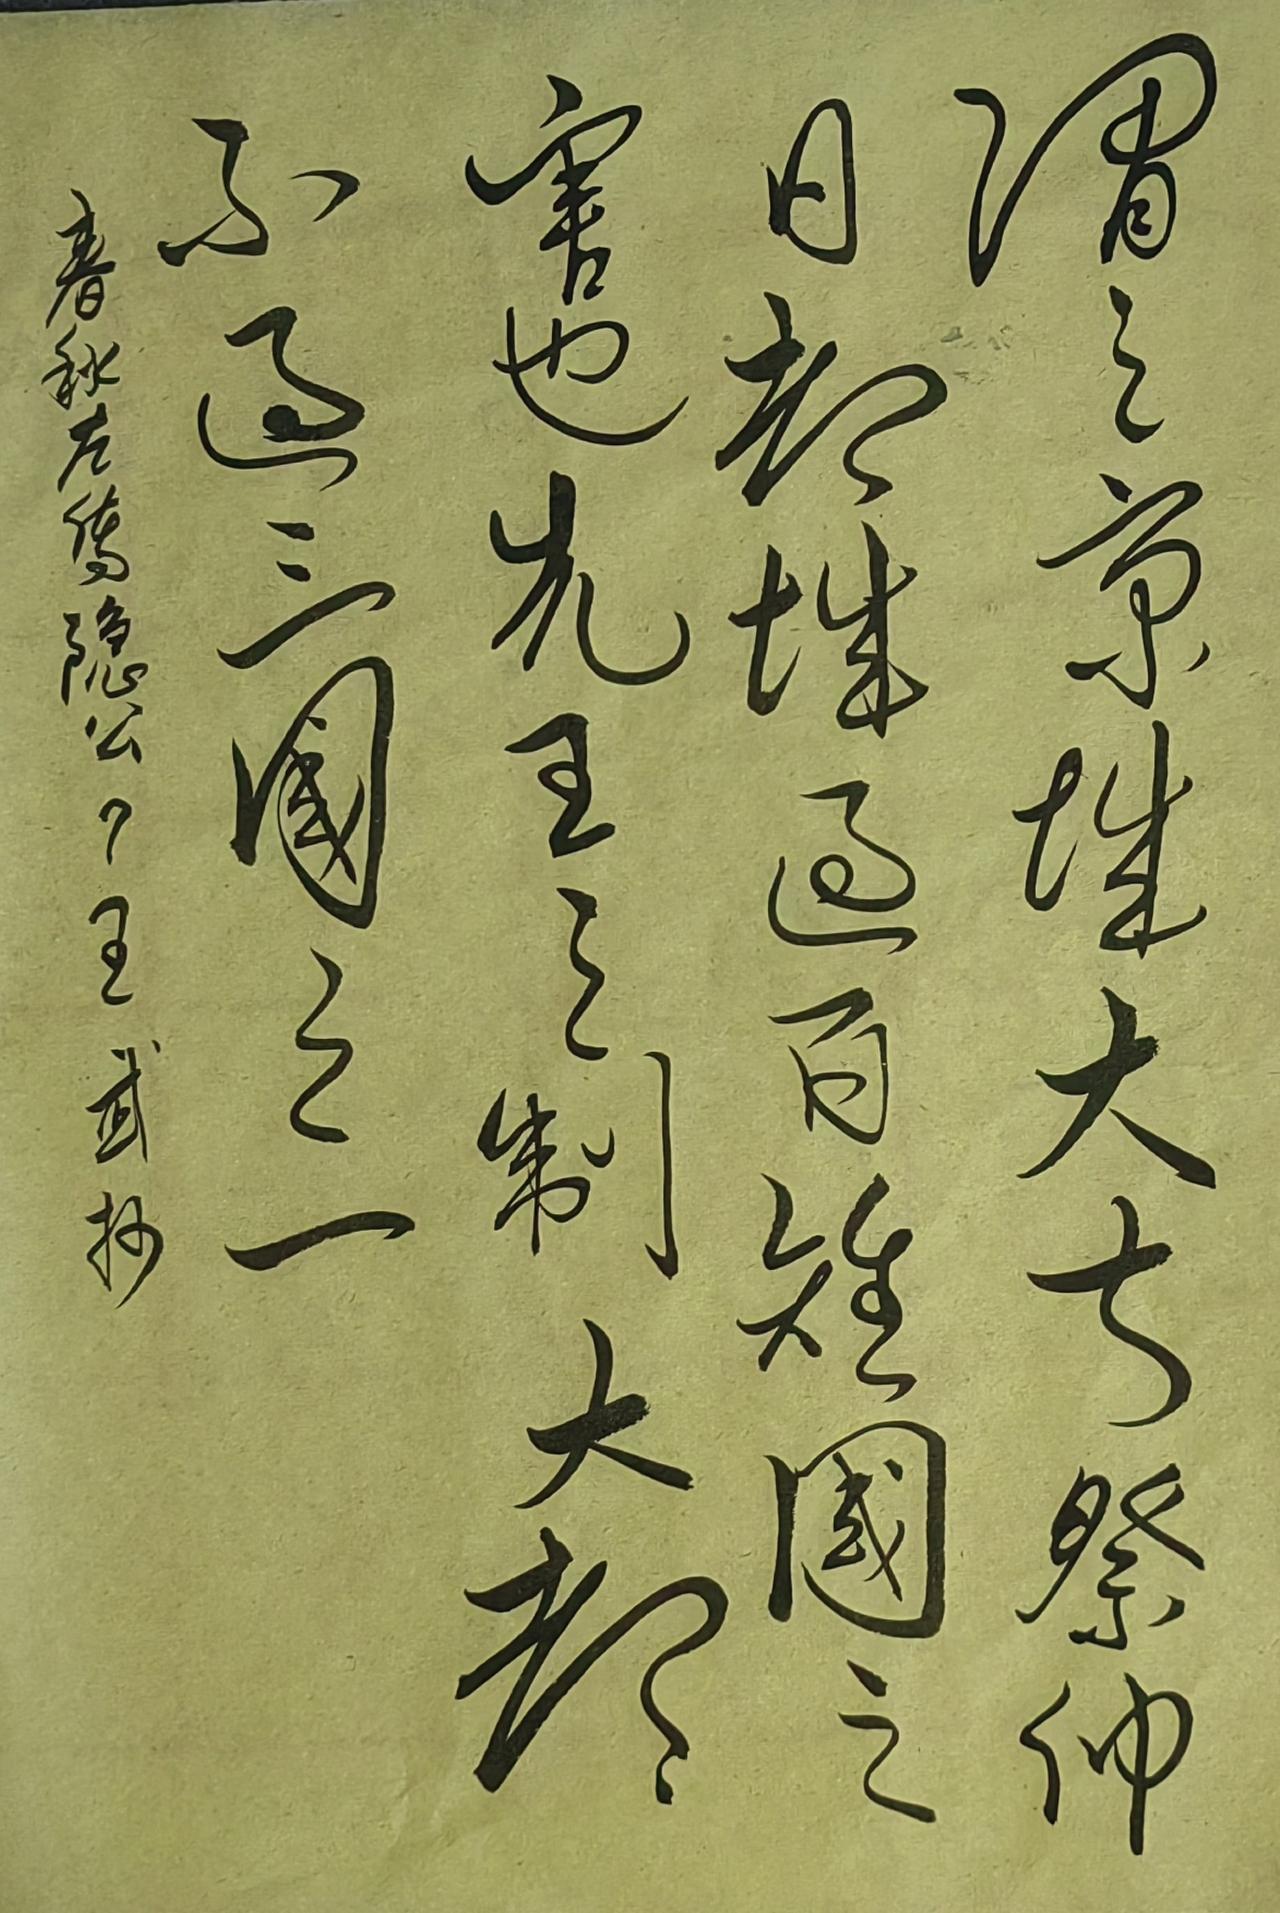 谓之京城大叔祭仲
曰都城过百雉國之
害也先王之制大都
不过三國之一
春秋左传隐公 王武抄